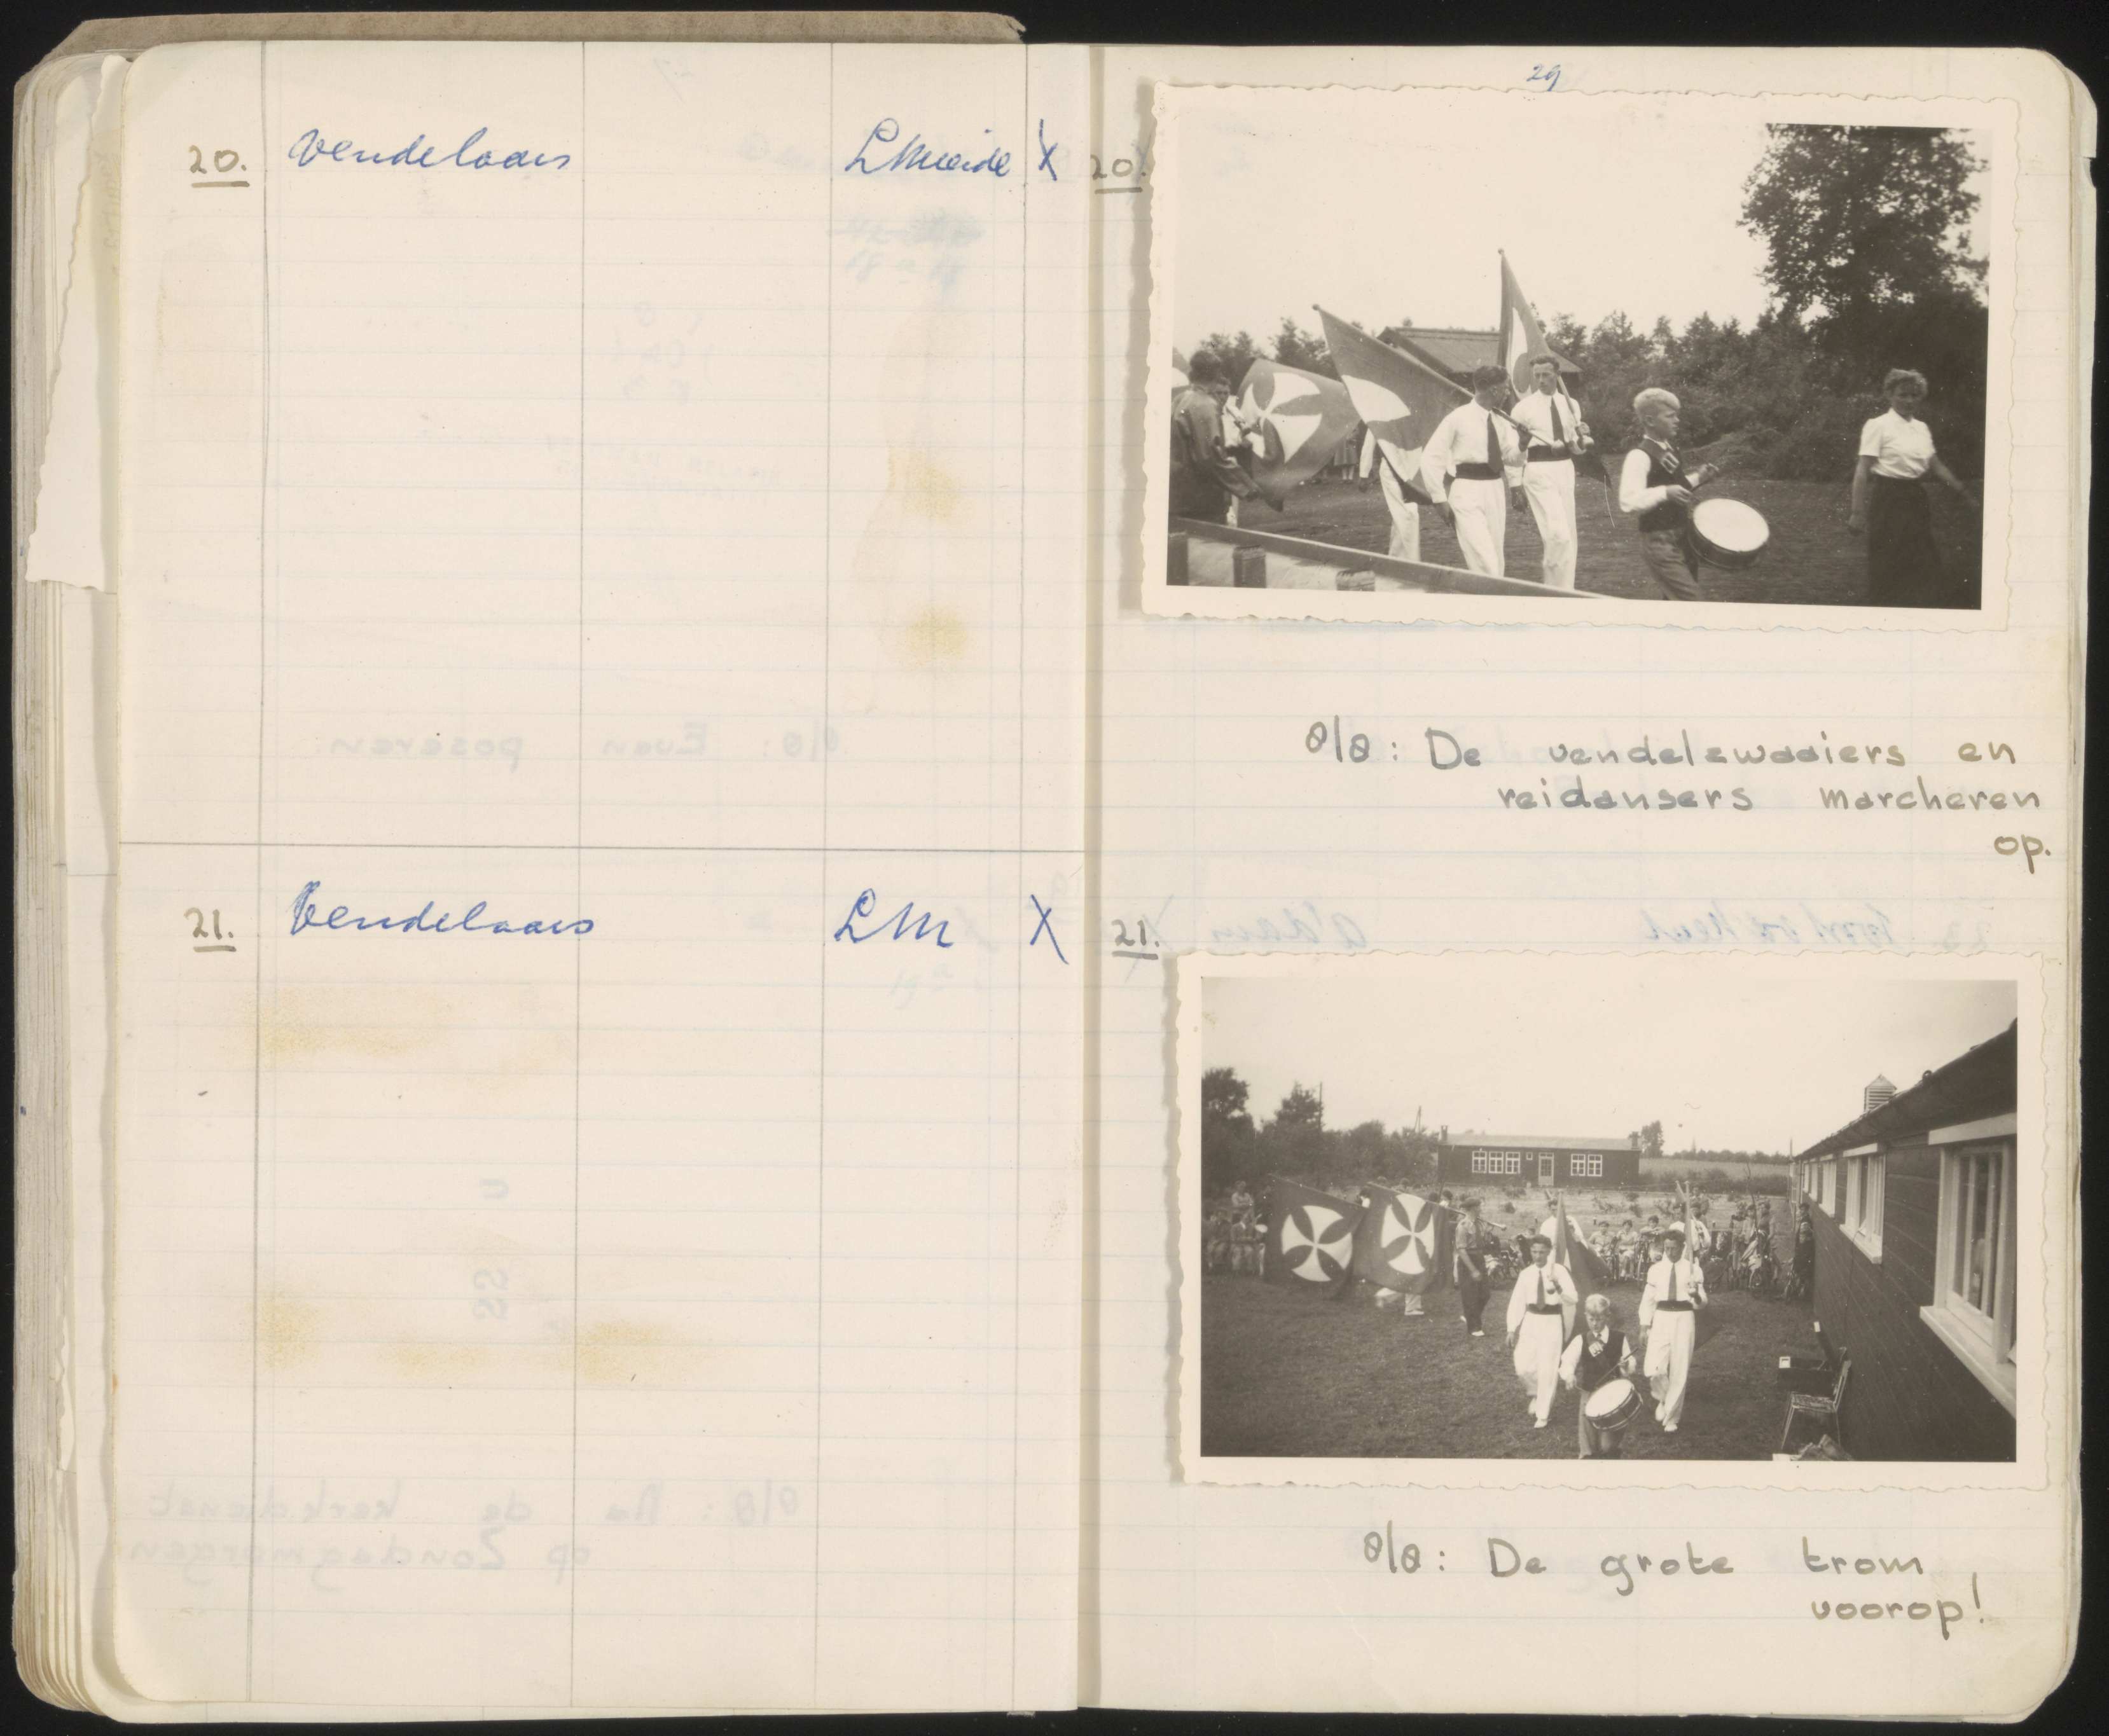 20. Vendelaars LMueide X
21. Vendelaars LM X
29
20.
8/8: De vendelzwaaiers en
reidansers marcheren
op.
21.
8/8: De grote trom
voorop!